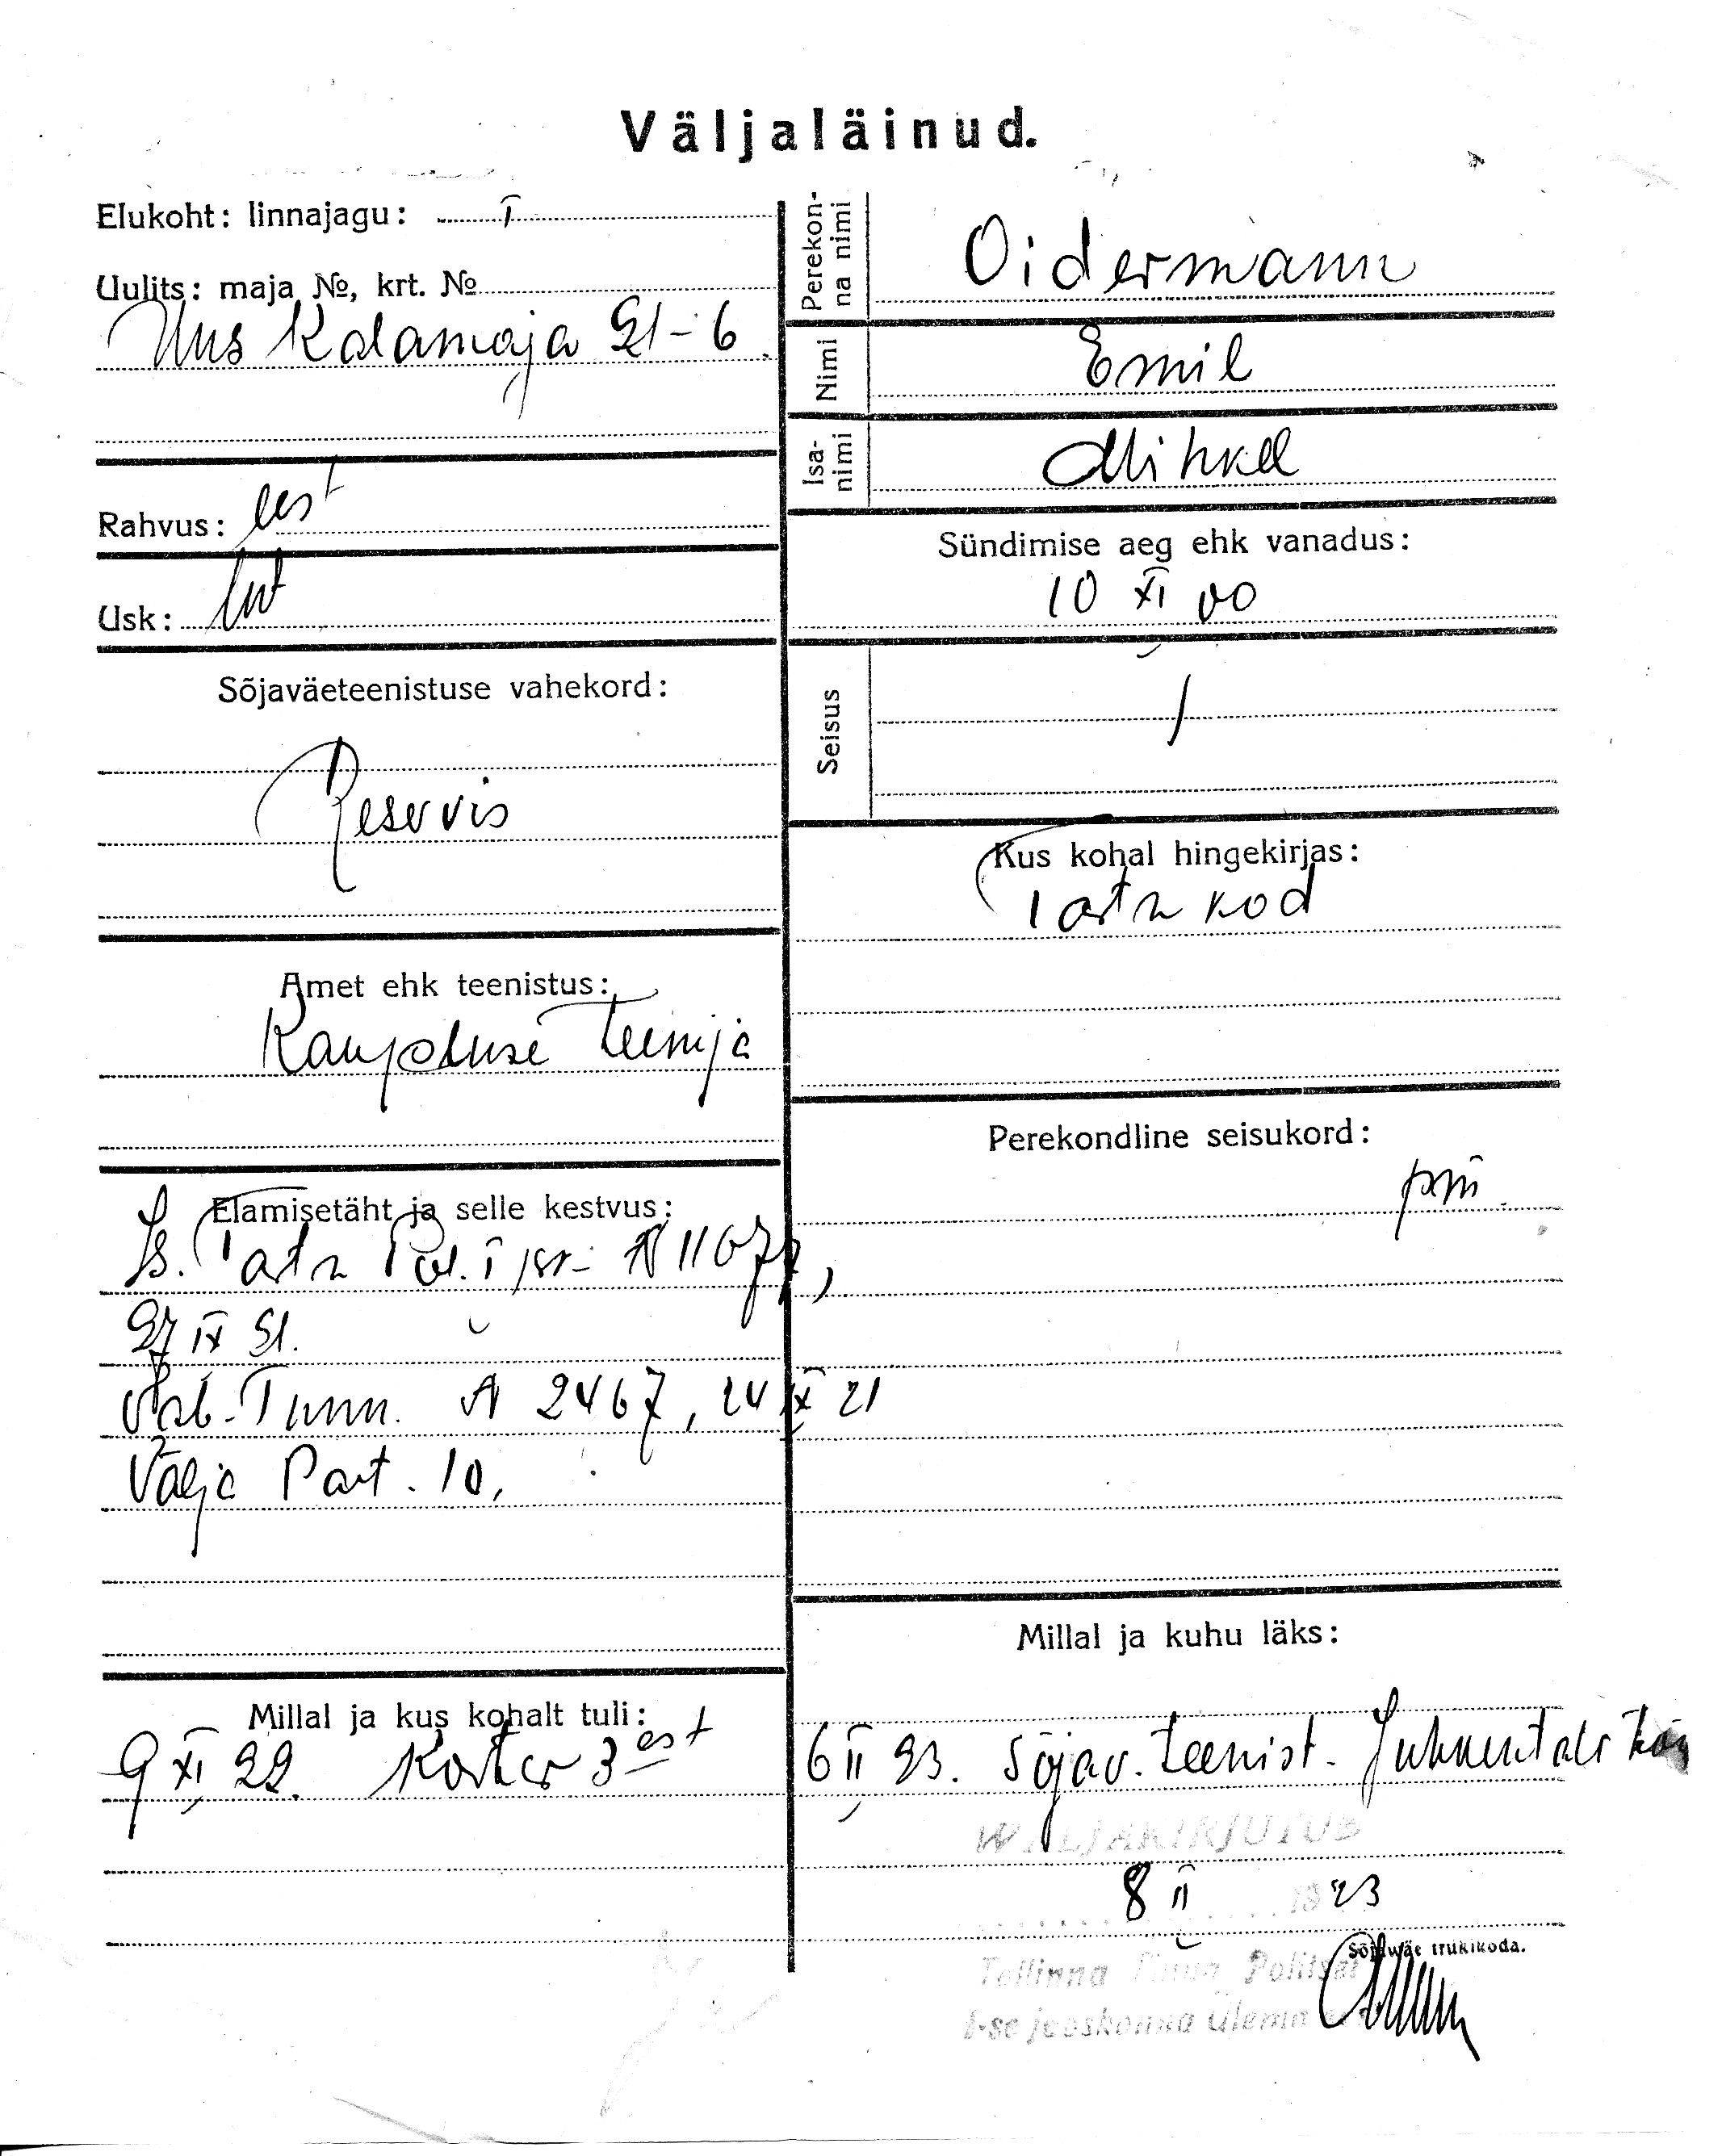 Väljaläinud.
Elukoht: linnajagu: I
Uulits: maja №, krt. №
Uus Kalamaja 21-6.
Rahvus: eest
Usk: lut
Sõjaväeteenistuse vahekord:
Reservis
Amet ehk teenistus:
Kaupluse teenija
Elamisetäht ja selle kestvus:
Is. Tartu Pol. I jsk. № 11077,
27 IX 21.
Vab. Tunn. A 2467, 24 IX 21
Välja Part. 10.
Millal ja kus kohalt tuli:
9 XI 22. Korter 3 est
Perekonna nimi
Oidermann
Nimi
Emil
Isanimi
Mihkel
Sündimise aeg ehk vanadus:
10 XI 00
Seisus
/
Kus kohal hingekirjas:
Tartu kod
Perekondline seisukord:
Millal ja kuhu läks:
6 II 23. Sõjav. teenist.
WÄLJAKIRJUTUD
8 II 1923
Sõjawäe trükikoda.
Tallinna Politsei
1-se jaoskonna ülem